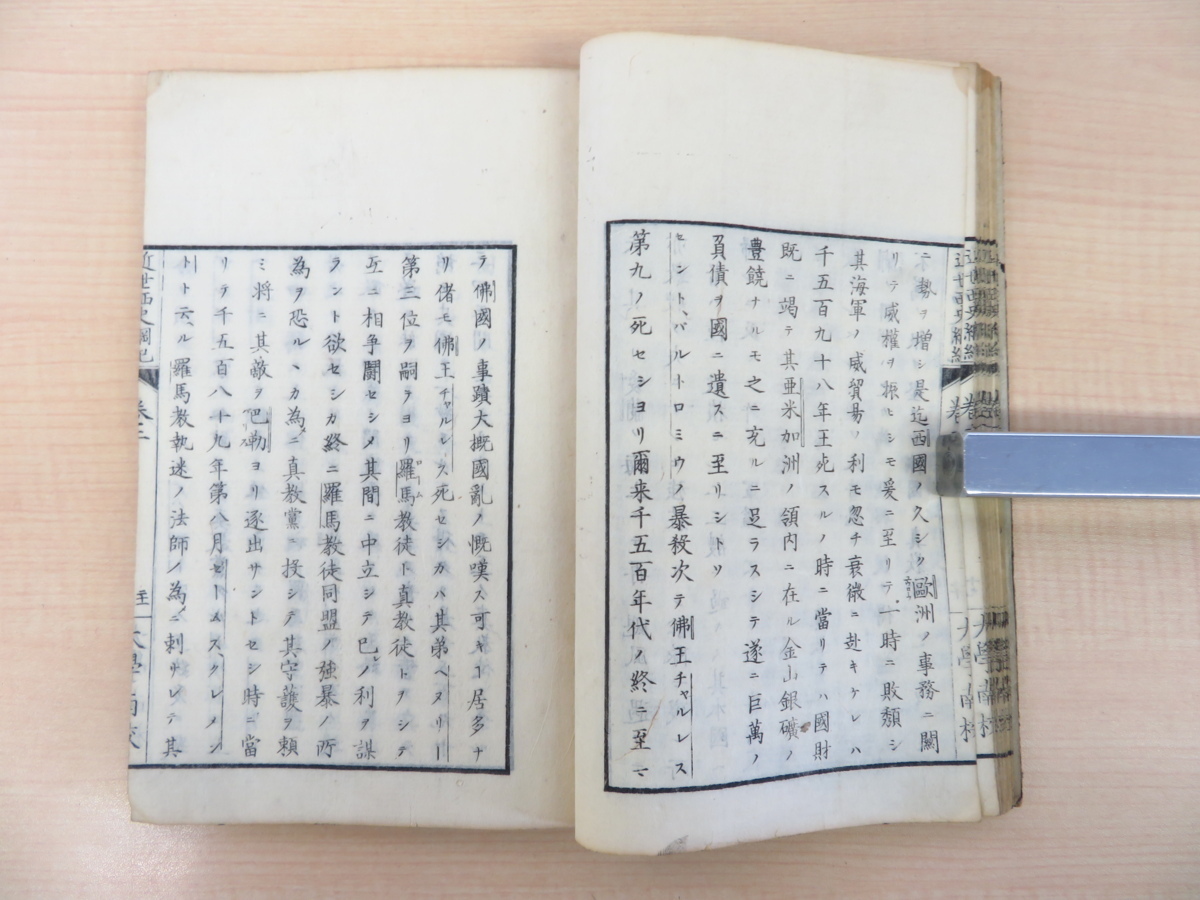 ニ勢ヲ増シ是迄西國ノ久シク歐洲ノ事務ニ關
リテ威權ヲ振ヒシモ爰ニ至リテ一時ニ敗頽シ
其海軍ノ威貿易ノ利モ忽チ衰微ニ赴キケレハ
千五百九十八年王死スルノ時ニ當リテハ國財
既ニ竭テ其亜米加洲ノ領内ニ在ル金山銀礦ノ
豊饒ナルモ之ニ充ルニ足ラスシテ遂ニ巨萬ノ
負債ヲ國ニ遺スニ至リシトソ
セント、バルトロミウノ暴殺次テ佛王チャルレス
第九ノ死セシヨリ爾来千五百年代ノ終ニ至マ
テ佛國ノ事蹟大概國亂ノ慨嘆ス可キヿ居多ナ
リ偖モ佛王チャルレス死セシカハ其弟ヘヌリー
第三位ヲ嗣テヨリ羅馬教徒ト真教徒トヲシテ
互ニ相争闘セシメ其間ニ中立シテ己ノ利ヲ謀
ラント欲セシカ終ニ羅馬教徒同盟ノ強暴ノ所
為ヲ恐ルヽカ為ニ真教黨ニ投シテ其守護ヲ頼
ミ將ニ其敵ヲ巴勒ヨリ逐出サントセシ時ニ當
リテ千五百八十九年第八月セームスクレメン
トト云ル羅馬教執迷ノ法師ノ為ニ刺サレテ其
近世西史綱紀 卷二
大學南校